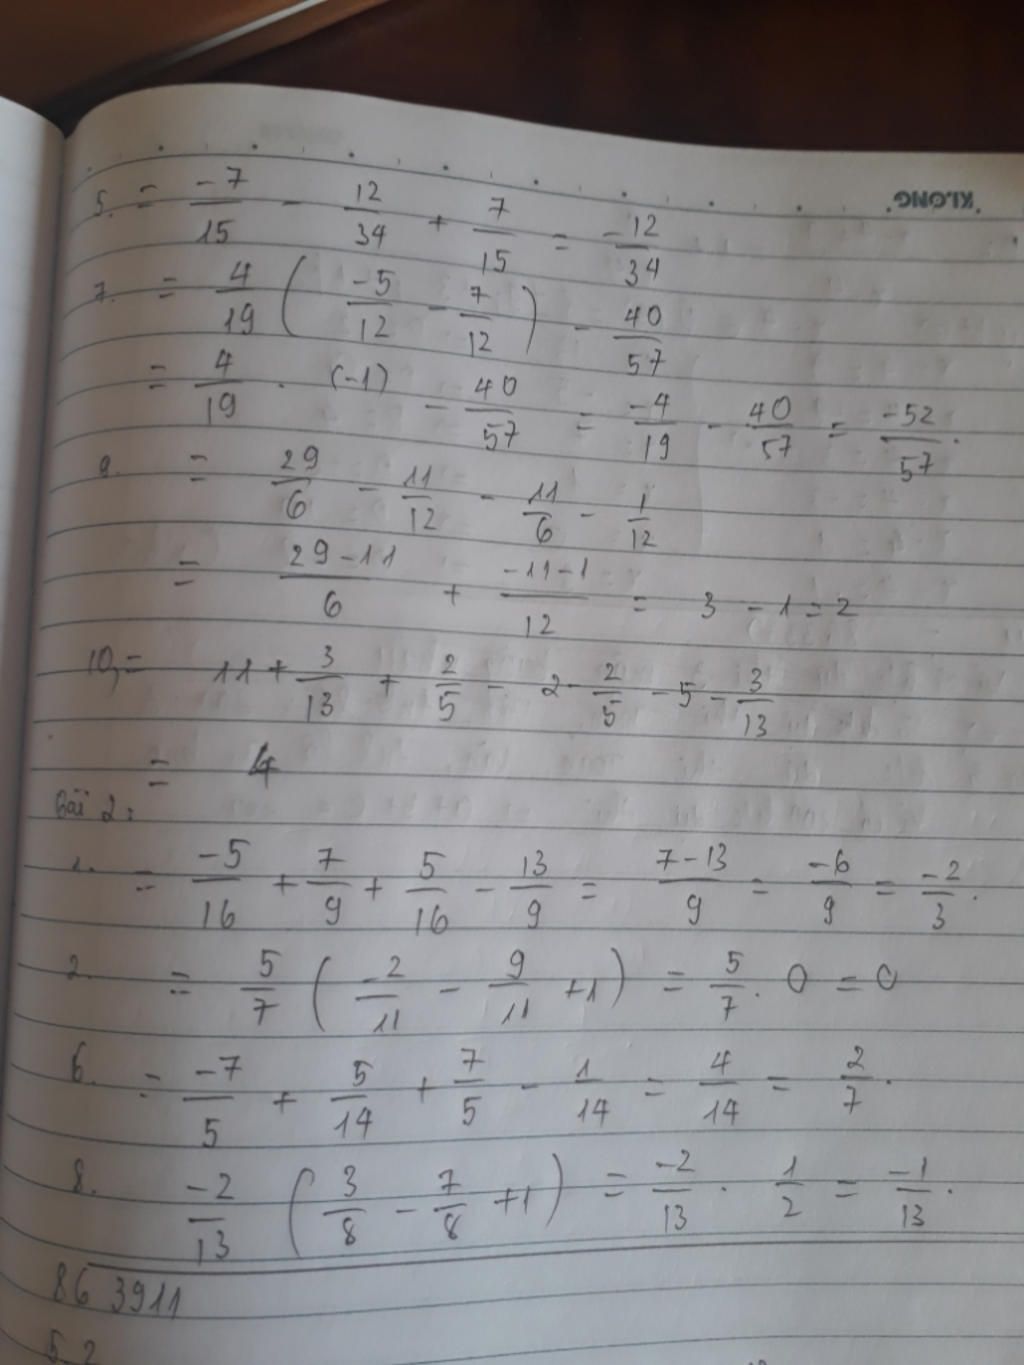 KLONG
5. = -7/15 - 12/34 + 7/15 = -12/34
7. = 4/19 ( -5/12 - 7/12 ) - 40/57
= 4/19 . (-1) - 40/57 = -4/19 - 40/57 = -52/57.
9. = 29/6 - 11/12 - 11/6 - 1/12
= 29-11/6 + -11-1/12 = 3 - 1 = 2
10, = 11 + 3/13 + 2/5 - 2 - 2/5 - 5 - 3/13
= 4
Bài 2:
1. = -5/16 + 7/9 + 5/16 - 13/9 = 7-13/9 = -6/9 = -2/3.
2. = 5/7 ( -2/11 - 9/11 +1 ) = 5/7 . 0 = 0
6. = -7/5 + 5/14 + 7/5 - 1/14 = 4/14 = 2/7.
8. -2/13 ( 3/8 - 7/8 +1 ) = -2/13 . 1/2 = -1/13.
86 3911
5 2